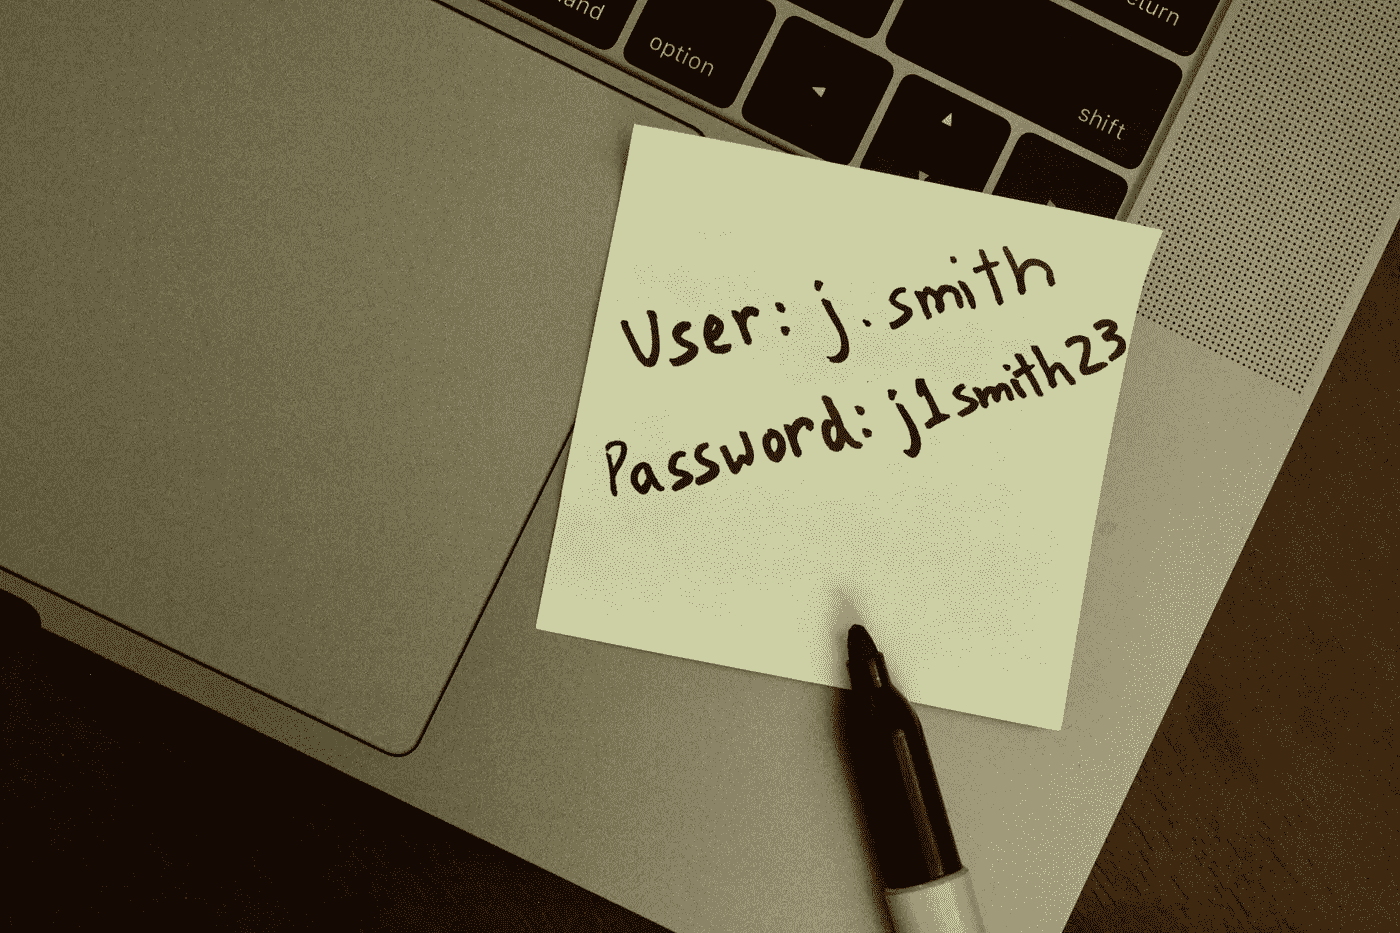 option
shift
User: j.smith
Password: j1smith23